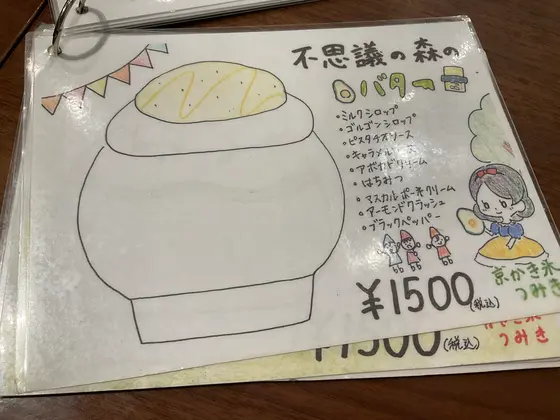 不思議の森の
バター
・ミルクシロップ
・ゴルゴンシロップ
・ピスタチオソース
・キャラメル
・アボカドクリーム
・はちみつ
・マスカルポーネクリーム
・アーモンドクラッシュ
・ブラックペッパー
¥1500(税込)
京かき氷
つみき
(税込)
つみき